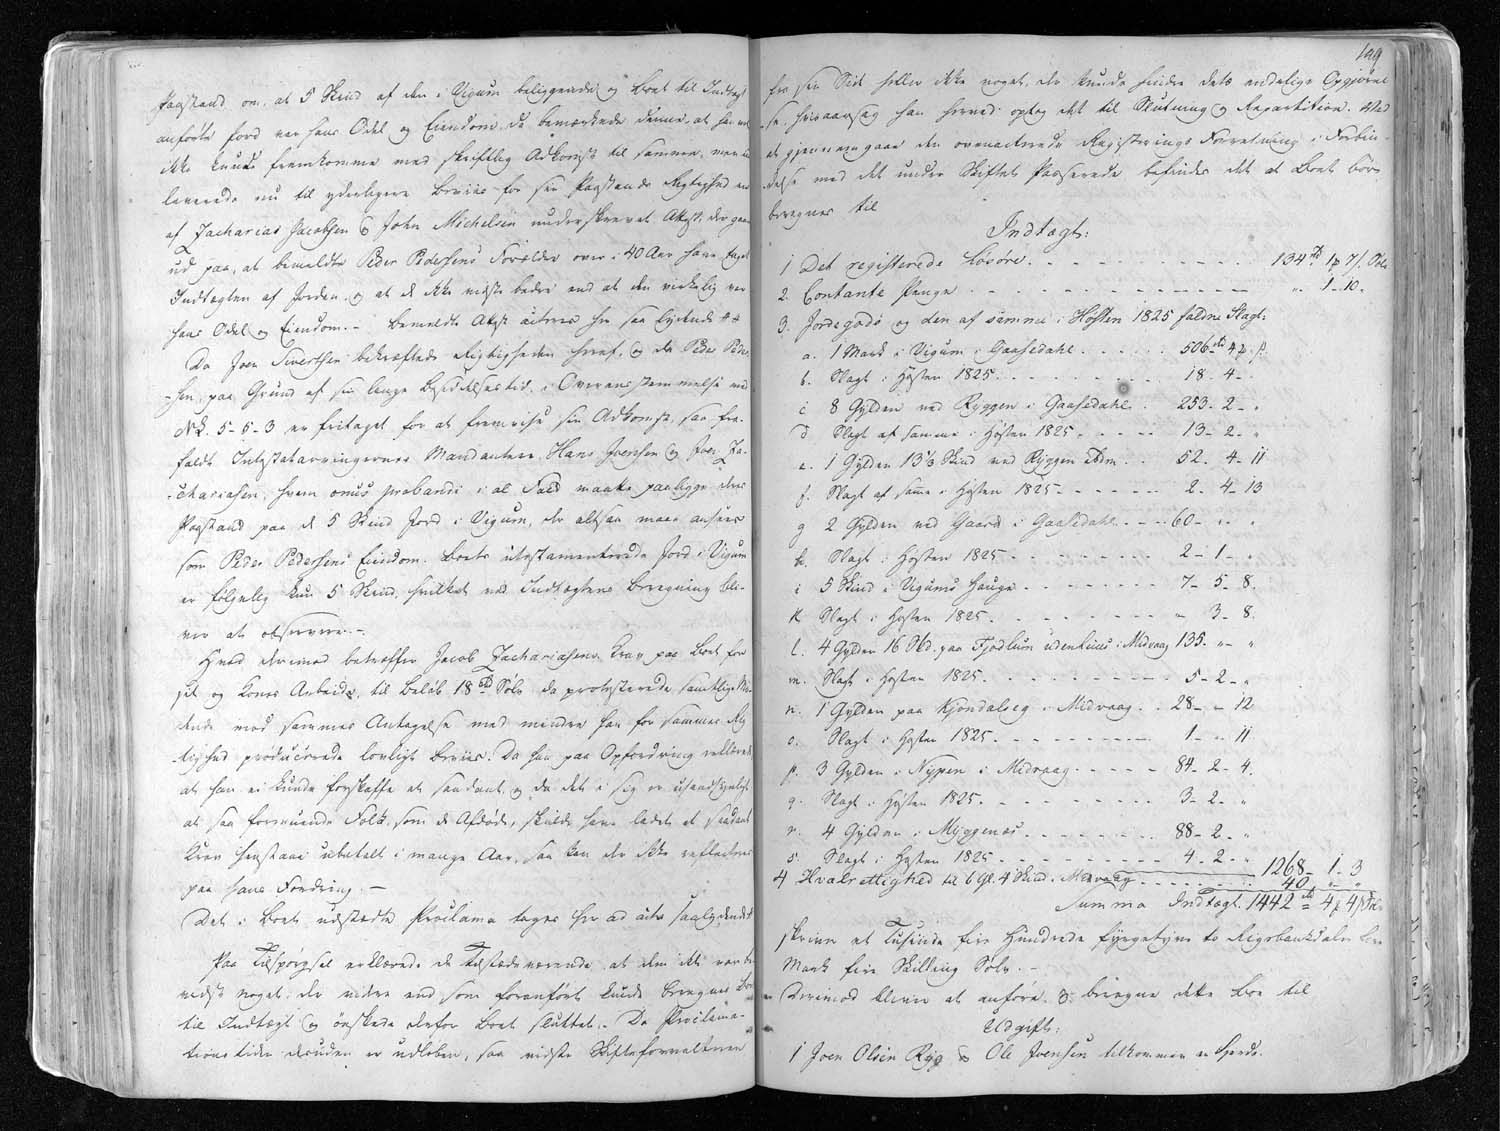 Paastand om, at 5 Skind af den i Vigum beliggende og Boet til Indtægt
anførte Jord var hans Odel og Eiendom, da bemærkede denne, at han vel
ikke kunde fremkomme med skriftlig Adkomst til samme, men
leverede nu til yderligere Beviis for sin Paastands Rigtighed en
af Zacharias Jacobsen & John Michelsen underskrevet Attest, der gaar
ud paa, at bemeldte Peder Pedersens Forældre over i 40 Aar have taget
Indtægten af Jorden, og at de ikke vidste bedre end at den virkelig var
hans Odel og Eiendom. – Bemeldte Attest acteres her saa lydende ++
Da Joen Sivertsen bekræftede Rigtigheden heraf, og da Peder Peder-
sen, paa Grund af sin lange Besiddelsestid, i Overensstemmelse med
NL. 5-5-3 er fritaget for at fremvise sin Adkomst, saa fra-
faldt Intestatarvingernes Mandantere Hans Joensen og Joen Za-
chariasen, hvem onus probandi i al Fald maatte paaligge, deres
Paastand paa de 5 Skind Jord i Vigum, der altsaa maa ansees
som Peder Pedersens Eiendom. Boets utestamenterede Jord i Vigum
er følgelig kun 5 Skind, hvilket ved Indtægtens Beregning bli-
ver at observere. –
Hvad derimod betræffer Jacob Zachariasens Krav paa Boet for
sit og Kones Arbeide, til Beløb 18 rbd Sølv, da protesterede samtlige
mod sammes Antagelse med mindre han for sammes Rig-
tighed producerede lovligt Beviis. Da han paa Opfordring erklærede
at han ei kunde forskaffe et saadant, og da det i sig er usandsynligt
at saa formuende Folk, som de Afdøde, skulde have ladet et saadant
Krav henstaae ubetalt i mange Aar, saa kan der ikke reflecteres
paa hans Fordring. –
Det i Boet udstædte Proclama tages her ad acta saalydende ++
Paa Tilspørgsel erklærede de Tilstædeværende, at dem ikke var be-
vidst noget, der videre end som foranført kunde beregnes Boet
til Indtægt og ønskede derfor Boet sluttet. – Da Proclama-
tions tiden desuden er udløben, saa vidste Skifteforvalteren
199
fra sin Side heller ikke noget, der kunde hindre dets endelige Opgjørel-
se, hvisaarsag han herved optog det til Slutning og Repartition. Ved
at gjennemgaae den ovenacterede Registerings Forretning i Forbin-
delse med det under Skiftet Passerede befindes det at Boet bør
beregnes til
Indtægt:
1 Det registerede Løsøre . . . . 134 rbd 1 ƒ 7 s. Sølv
2. Contante Penge . . . . „ 1-10.
3. Jordegods og den af samme i Høsten 1825 faldne Slagt:
a. 1 Mark i Vigum i Gaasedahl . . . . 506 rbd 4 ƒ. s.
b. Slagt i Høsten 1825 . . . . 18. 4- „
c 8 Gylden ved Ryggen i Gaasedahl . . 253-2- „
d Slagt af samme i Høsten 1825 . . . . 13-2- „
e. 1 Gylden 13⅓ Skind ved Ryggen ibdm. . . 52. 4-11
f. Slagt af samme i Høsten 1825 . . . . 2. 4-13
g 2 Gylden ved Gaard i Gaasedahl . . . . 60- „ „
h. Slagt i Høsten 1825 . . . . 2-1- „
i 5 Skind i Vigums Hauge . . . . 7-5-8.
k Slagt i Høsten 1825 . . . . „ 3-8.
l. 4 Gylden 16 Skd. paa Fjodlum udenhuus i Midvaag 135. „ „
m. Slagt i Høsten 1825 . . . . 5-2- „
n. 1 Gylden paa Kjondaloeg i Midvaag . . 28- „ 12
o. Slagt i Høsten 1825 . . . . 1- „ 11
p. 3 Gylden i Nypen i Midvaag . . . . 84-2-4.
q. Slagt i Høsten 1825 . . . . 3-2- „
r. 4 Gylden i Myggenæs . . . . 88-2- „
s. Slagt i Høsten 1825 . . . . 4-2- „ 1268-1-3
4 Hvalrettighed til 6 Gl. 4 Skind i Midvaag . . . . 40 „ „
Summa Indtægt 1442 rbd 4 ƒ 4 s Sølv
skriver et Tusinde fire Hundrede fyrgetyve to Rigsbankdaler fire
Mark fire Skilling Sølv. –
Derimod bliver at anføre & beregne dette Boe til
Udgift:
1 Joen Olsen Ryg & Ole Joensen tilkommer en Hjerde.